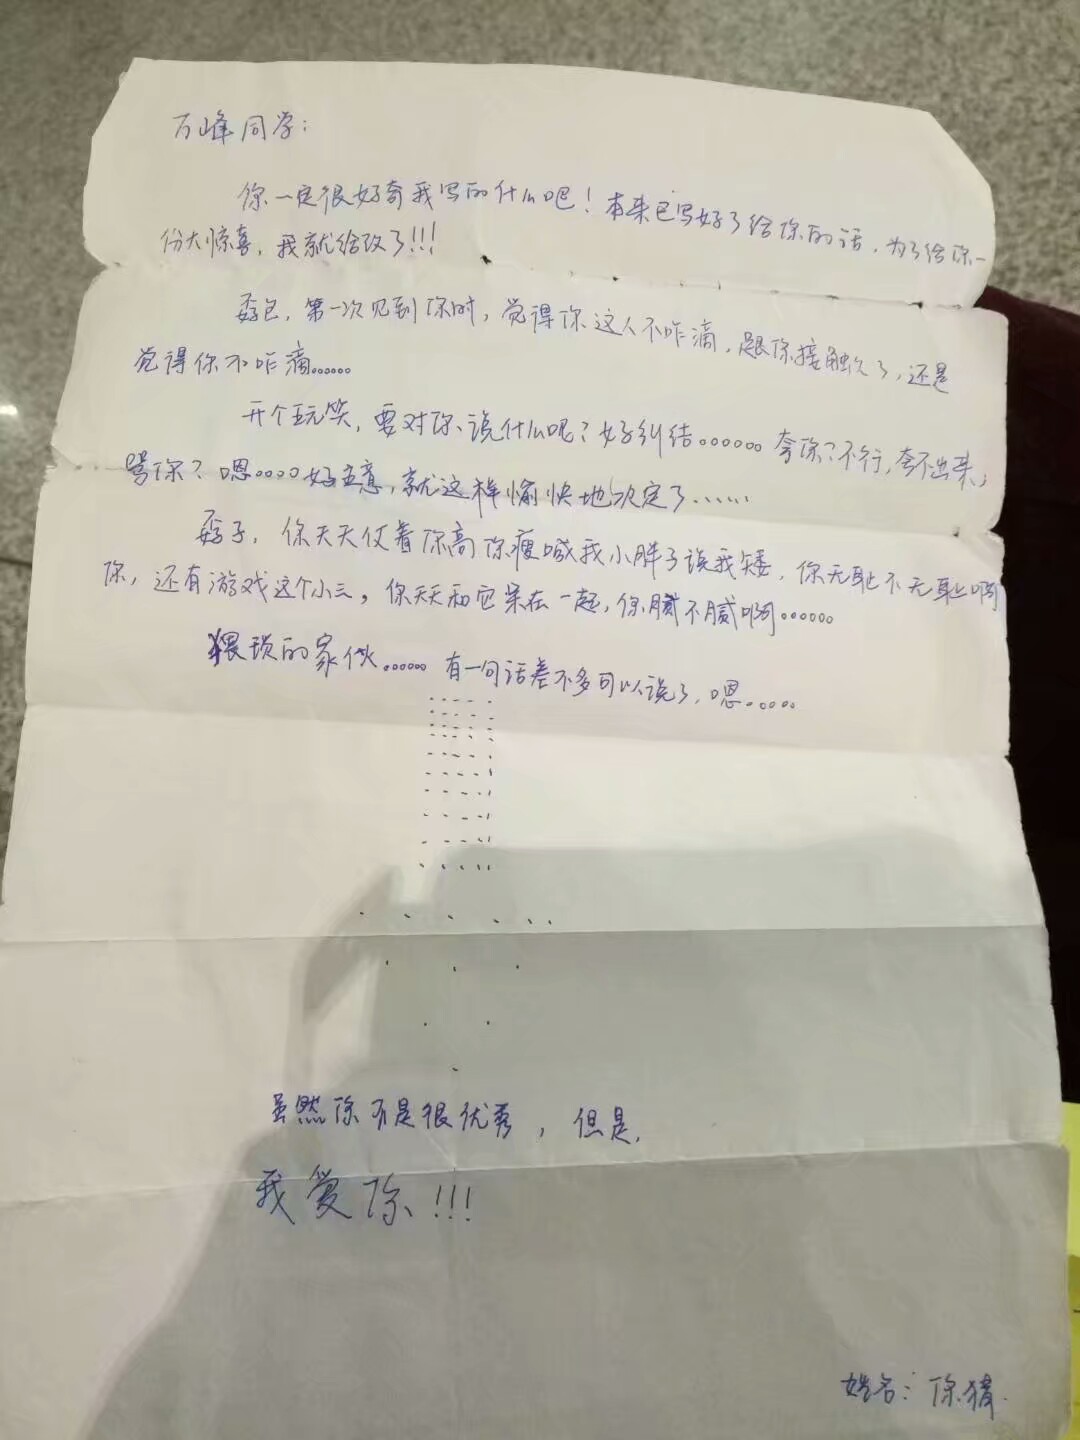 万峰同学：
你一定很好奇我写的什么吧！本来已写好了给你的话，为了给你一
份大惊喜，我就给改了!!!
包，第一次见到你时，觉得你这人不咋滴，跟你接触久了，还是
觉得你不咋滴……
开个玩笑，要对你说什么呢？好纠结。。。。。。夸你？不行，夸不出来，
骂你？嗯。。。。好主意，就这样愉快地决定了……
子，你天天仗着你高你瘦喊我小胖子说我矮，你无耻不无耻啊
你，还有游戏这个小三，你天天和它呆在一起，你腻不腻啊。。。。。。
猥琐的家伙……有一句话差不多可以说了，嗯……
虽然你不是很优秀，但是，
我爱你!!!
姓名：你猜.